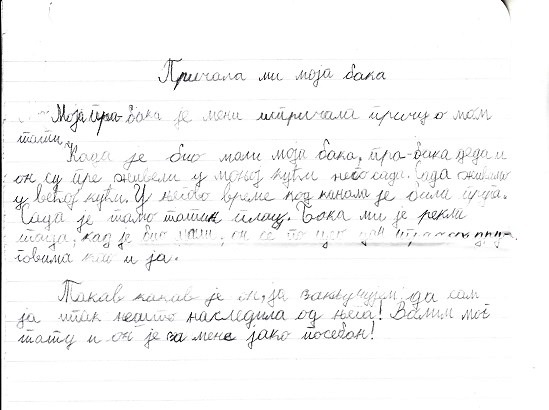 Причала ми моја бака
Моја пра-бака је мени испричала причу о мом
тати.
Када је био мали моја бака, пра-бака деда и
он су пре живели у мањој кући него сада. Сада живимо
у већој кући. У његово време код канала је била пруга.
Сада је тамо татин плац. Бака ми је рекла
тата, кад је био мали, он се по цео дан играо са друг-
овима као и ја.
Такав какав је он, ја закључујем да сам
ја ипак нешто наследила од њега! Волим мог
тату и он је за мене јако посебан!